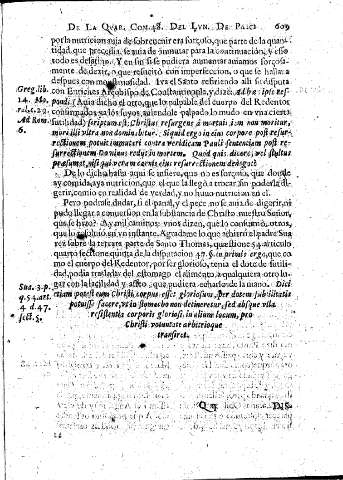 DE LA QVAR. COM. 48. DEL LVN. DE 609
por la nutricion auja de sobreuenir era forçoso, que parte de la quantidad,
que precedia, se auia de inmutar para la continuacion, y esto
todo es desatino. Y en si se pudiera aumentar auiamos forçosamente
de dezir, o que resucitò con imperfeccion, o que se hallaua
despues con Iva el Santo refiriendo alli su disputa
con Arçobispo de Constantinopla, y dize: Ad hæc ipse respondi
(Auia dicho el otro, que lo palpable del cuerpo del Redentor
Greg. lib.
14. Mo.
ral. c. 29.
Ad Rom.
6.
scriptum est: Christus resurgens à mortuis iam non moritur,
mors illi vltra non dominabitur. Siquid ergo in eius corpore post resurrectionem
potuit immutari contra veridicam Pauli sententiam post resurrectionem
Dominus redijt in mortem. Quod quis dicere, vel stultus
præsumat, nisi qui veram carnis eius resurrectionem denegat?
De lo dicho hasta aqui se infiere, que no es forçoso, que donde
ay comida, aya nutricion, que el que la llegò a trocar sin poderla digerir,
comio en realidad de verdad, y no huuo nutricion en el.
Pero podrase dudar, si el panal, y el pece no se auia de digerir, ni
pudo llegar a conuersion en la substancia de Christo nuestro Señor,
que se hizo? Ay mil caminos: vnos dizen, que lo consumio, otros,
que lo en vn instante. Agradame lo que aduirtio el padre Suarez
sobre la tercera parte de Santo Thomas, question 54. articulo
quarto seccione quinta de la disputacion 47. §. in priuis ergo, que como
el cuerpo del Redentor, por ser glorioso, tenia el dote de sutilidad,
podia trasladar del estomago el alimento, a qualquiera otro lugar
con la facilidad y acto, que pudiera echarle de la mano. Dici
Sua. 3. p.
q. 54. art.
4. d. 47.
sect. 5.
etiam potest cum Christi corpus esset gloriosum, per dotem subtilitatis
potuisse facere, vt in stomacho non detineretur, sed absque vlla
resistentia corporis gloriosi in alium locum, pro
Christi voluntate arbitrioque
transiret.
Qqq DIS-